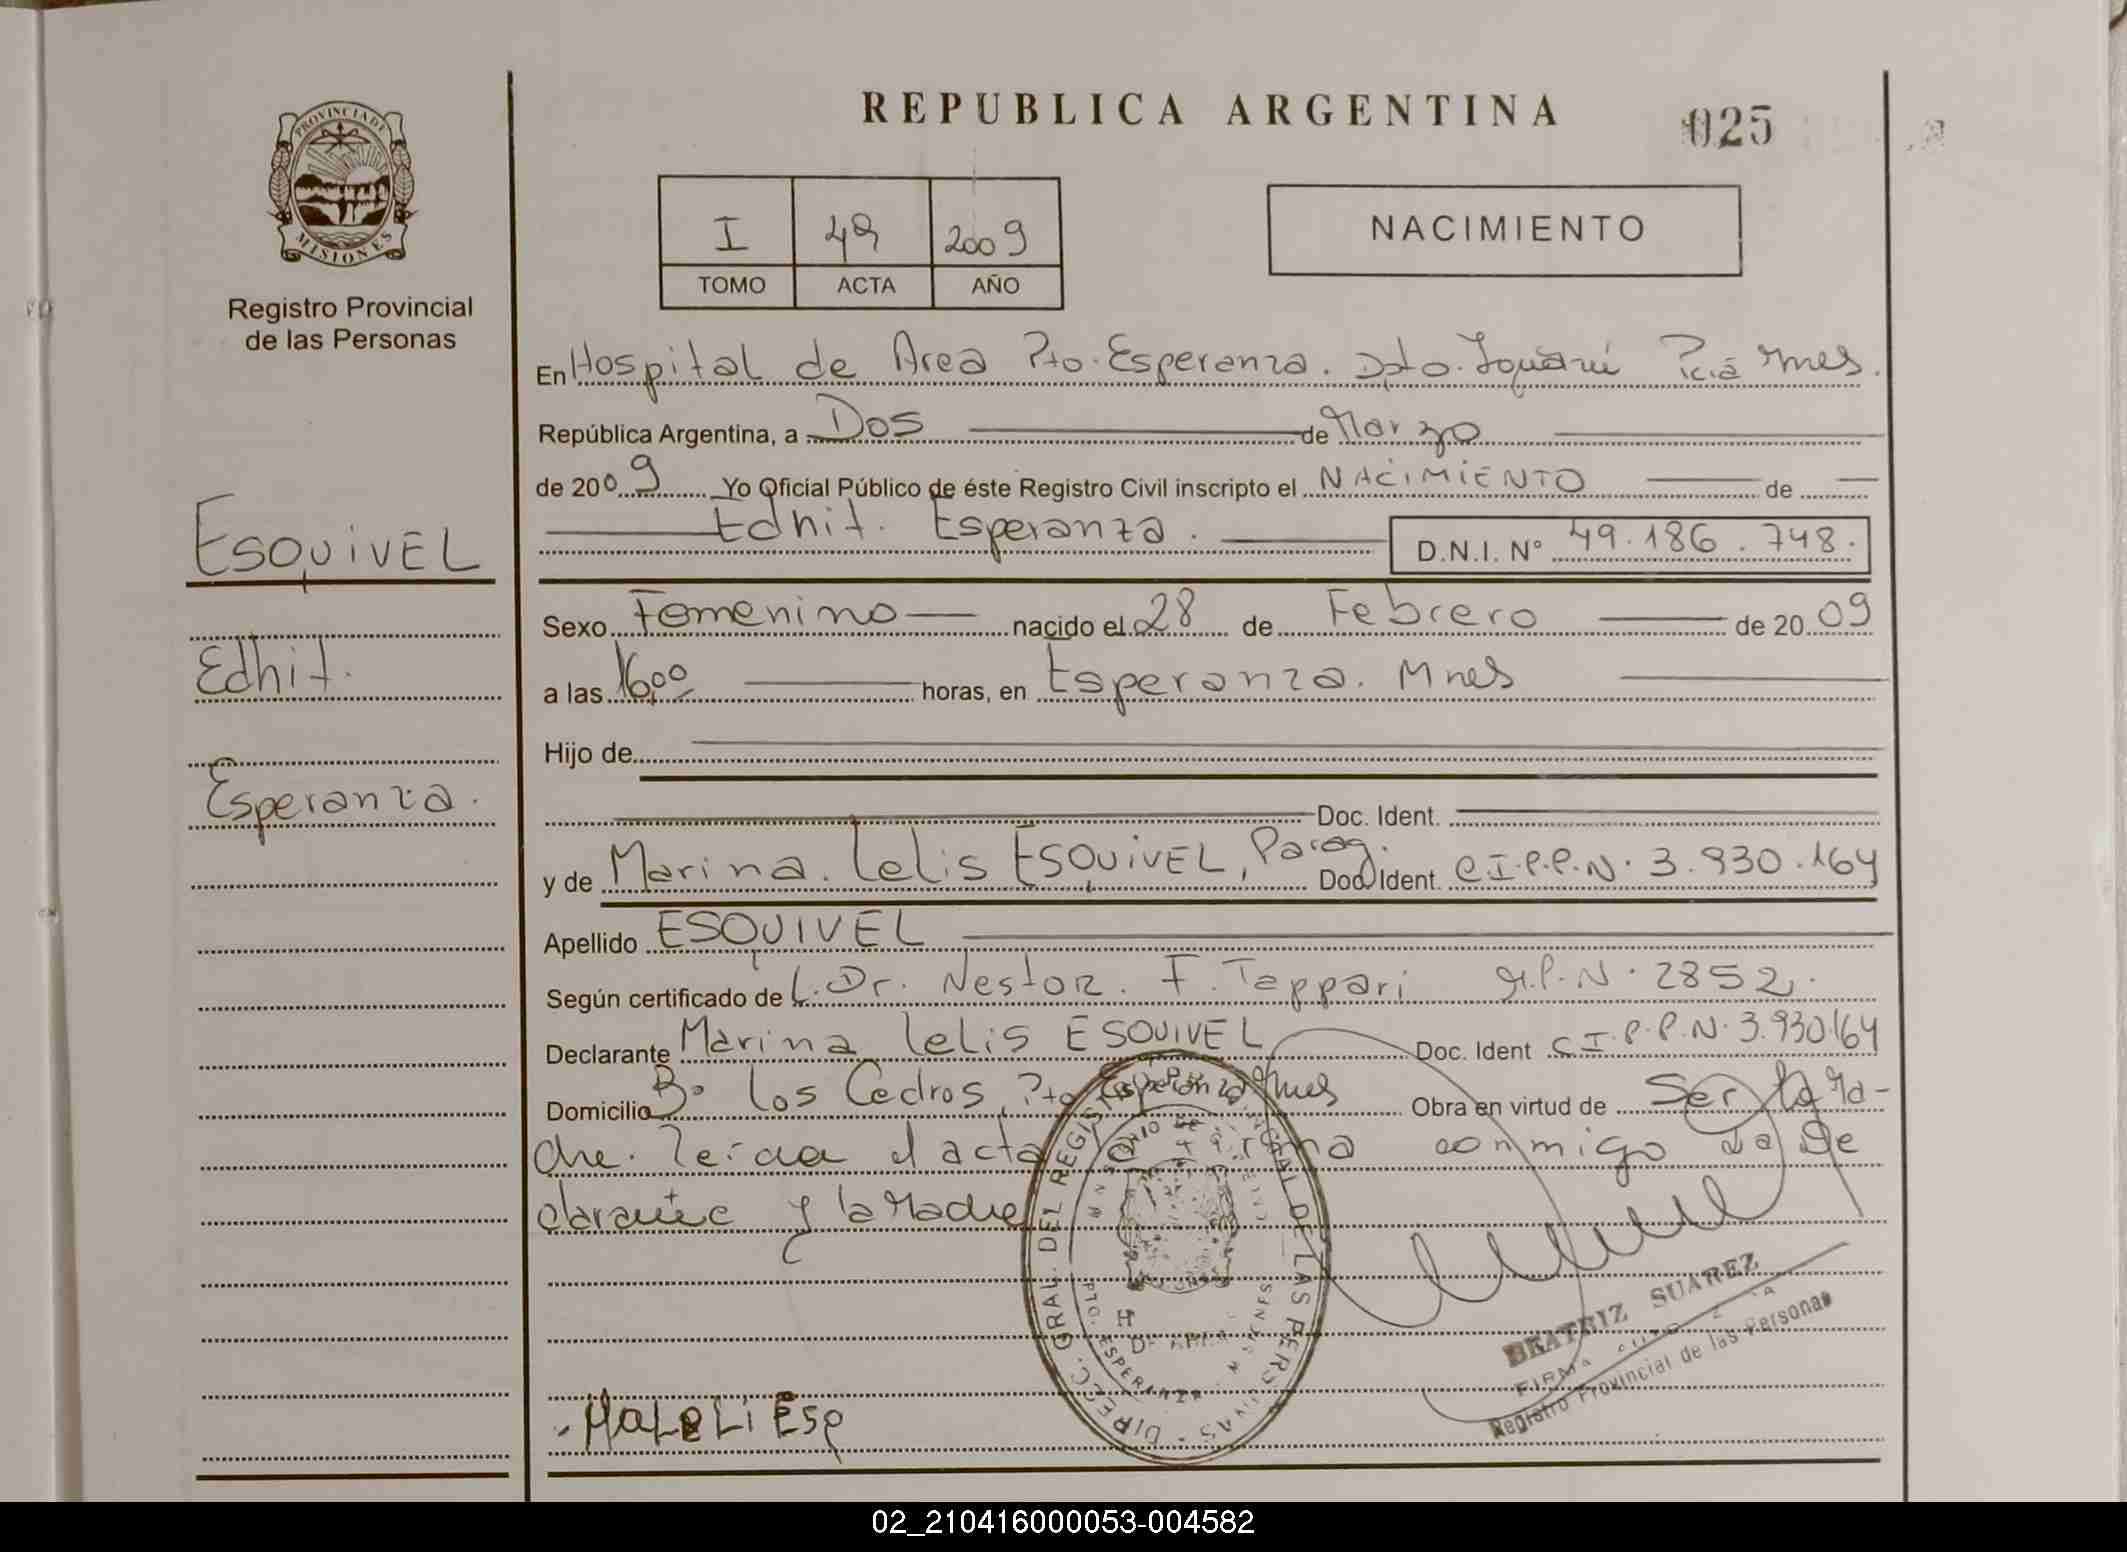 REPUBLICA ARGENTINA
025
PROVINCIA DE
MISIONES
Registro Provincial
de las Personas
I 49 2009
TOMO ACTA AÑO
NACIMIENTO
En Hospital de Area Pto. Esperanza. Dpto. Iguazú Pcia Mnes.
República Argentina, a Dos de Marzo
de 2009 Yo Oficial Público de éste Registro Civil inscripto el NACIMIENTO de
Edhit. Esperanza.
D.N.I. Nº 49.186.748.
ESQUIVEL
Edhit.
Esperanza.
Sexo Femenino nacido el 28 de Febrero de 2009
a las 16,00 horas, en Esperanza. Mnes
Hijo de
Doc. Ident.
y de Marina. Lelis ESQUIVEL, Parag. Doc. Ident. C.I.P.P.N. 3.930.164
Apellido ESQUIVEL
Según certificado de L. Dr. Nestor. F. Tappari M.P.N. 2852.
Declarante Marina Lelis ESQUIVEL Doc. Ident C.I.P.P.N. 3.930.164
Domicilio Bº Los Cedros, Pto Esperanza Mnes Obra en virtud de Ser la Ma-
dre. Leida el acta la firma conmigo la De
clarante y la Madre
DIRECC. GRAL. DEL REGISTRO PROVINCIAL DE LAS PERSONAS
PTO. ESPERANZA
BEATRIZ SUAREZ
Registro Provincial de las Personas
MaLeLi Esq
02_210416000053-004582